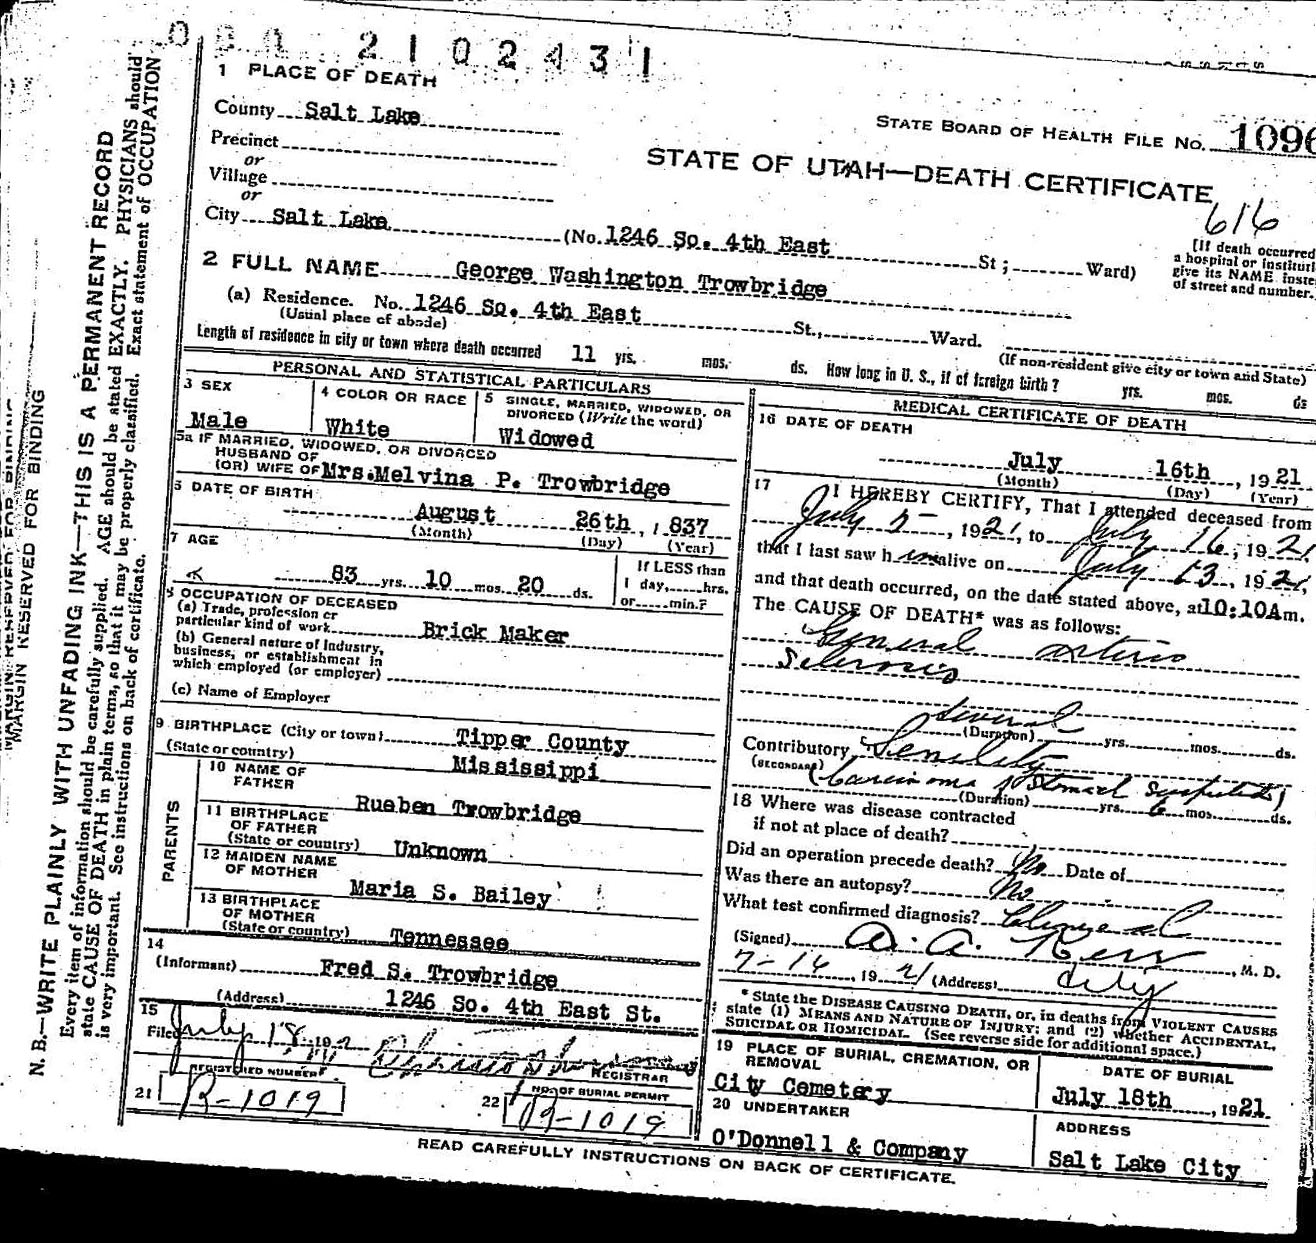 2102431
1 PLACE OF DEATH
County Salt Lake
STATE BOARD OF HEALTH FILE No. 1096
Precinct
or
Village
or
STATE OF UTAH—DEATH CERTIFICATE
616
City Salt Lake (No. 1246 So. 4th East St; Ward)
[If death occurred
a hospital or instituti
give its NAME inste
of street and number.
2 FULL NAME George Washington Trowbridge
(a) Residence. No. 1246 So. 4th East St., Ward.
(Usual place of abode)
(If non-resident give city or town and State)
Length of residence in city or town where death occurred 11 yrs. mos. ds. How long in U. S., if of foreign birth? yrs. mos. ds
PERSONAL AND STATISTICAL PARTICULARS
3 SEX
Male
4 COLOR OR RACE
White
5 SINGLE, MARRIED, WIDOWED, OR
DIVORCED (Write the word)
Widowed
5a IF MARRIED, WIDOWED, OR DIVORCED
HUSBAND OF
(OR) WIFE OF Mrs.Melvina P. Trowbridge
6 DATE OF BIRTH
August 26th, 1837
(Month) (Day) (Year)
7 AGE
83 yrs. 10 mos. 20 ds.
If LESS than
1 day, hrs.
or min.?
8 OCCUPATION OF DECEASED
(a) Trade, profession or
particular kind of work Brick Maker
(b) General nature of Industry,
business, or establishment in
which employed (or employer)
(c) Name of Employer
9 BIRTHPLACE (City or town) Tipper County
(State or country) Mississippi
PARENTS
10 NAME OF
FATHER Rueben Trowbridge
11 BIRTHPLACE
OF FATHER
(State or country) Unknown
12 MAIDEN NAME
OF MOTHER Maria S. Bailey
13 BIRTHPLACE
OF MOTHER
(State or country) Tennessee
14
(Informant) Fred S. Trowbridge
(Address) 1246 So. 4th East St.
15
Filed July 18, 192
REGISTRAR
REGISTERED NUMBER
21 R-1019
NO. OF BURIAL PERMIT
22 R-1019
MEDICAL CERTIFICATE OF DEATH
16 DATE OF DEATH
July 16th, 1921
(Month) (Day) (Year)
17 I HEREBY CERTIFY, That I attended deceased from
July 5-, 1921, to July 16, 1921,
that I last saw him alive on July 13, 1921,
and that death occurred, on the date stated above, at 10:10Am.
The CAUSE OF DEATH* was as follows:
General Arterio
Sclerosis
Several
(Duration) yrs. mos. ds.
Contributory Senility
(SECONDARY) (Carcinoma of Stomach suspected)
(Duration) yrs. 6 mos. ds.
18 Where was disease contracted
if not at place of death?
Did an operation precede death? No Date of
Was there an autopsy? No
What test confirmed diagnosis? Clinical
(Signed) A. A. Kerr, M. D.
7-16, 1921 (Address) City
* State the DISEASE CAUSING DEATH, or, in deaths from VIOLENT CAUSES
state (1) MEANS AND NATURE OF INJURY; and (2) whether ACCIDENTAL,
SUICIDAL OR HOMICIDAL. (See reverse side for additional space.)
19 PLACE OF BURIAL, CREMATION, OR
REMOVAL
City Cemetery
DATE OF BURIAL
July 18th, 1921.
20 UNDERTAKER
O'Donnell & Company
ADDRESS
Salt Lake City
READ CAREFULLY INSTRUCTIONS ON BACK OF CERTIFICATE.
MARGIN RESERVED FOR BINDING
MARGIN RESERVED FOR BINDING
N. B.—WRITE PLAINLY WITH UNFADING INK—THIS IS A PERMANENT RECORD
Every item of information should be carefully supplied. AGE should be stated EXACTLY. PHYSICIANS should
state CAUSE OF DEATH in plain terms, so that it may be properly classified. Exact statement of OCCUPATION
is very important. See instructions on back of certificate.